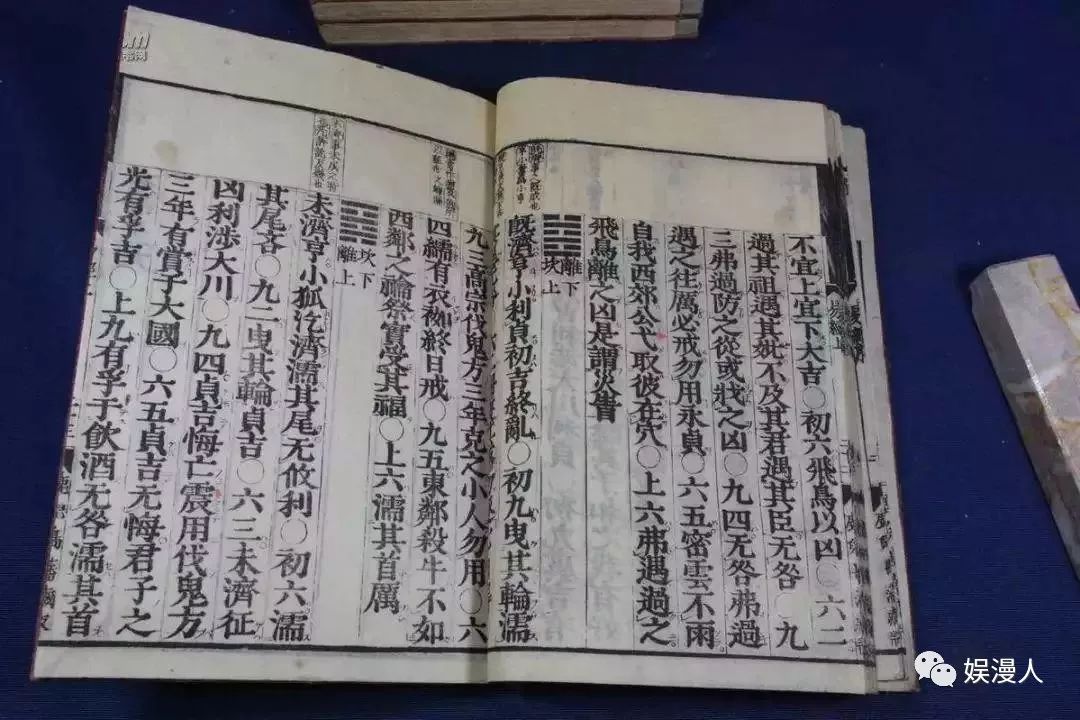 不宜上宜下大吉○初六飛鳥以凶○六二
過其祖遇其妣不及其君遇其臣无咎○九
三弗過防之從或戕之凶○九四无咎弗過
遇之往厲必戒勿用永貞○六五密雲不雨
自我西郊公弋取彼在穴○上六弗遇過之
飛鳥離之凶是謂災眚
離下
坎上
旣濟亨小利貞初吉終亂○初九曳其輪濡
九三高宗伐鬼方三年克之小人勿用○六
四繻有衣袽終日戒○九五東鄰殺牛不如
西鄰之禴祭實受其福○上六濡其首厲
坎下
離上
未濟亨小狐汔濟濡其尾无攸利○初六濡
其尾吝○九二曳其輪貞吉○六三未濟征
凶利涉大川○九四貞吉悔亡震用伐鬼方
三年有賞于大國○六五貞吉无悔君子之
光有孚吉○上九有孚于飲酒无咎濡其首
娱漫人